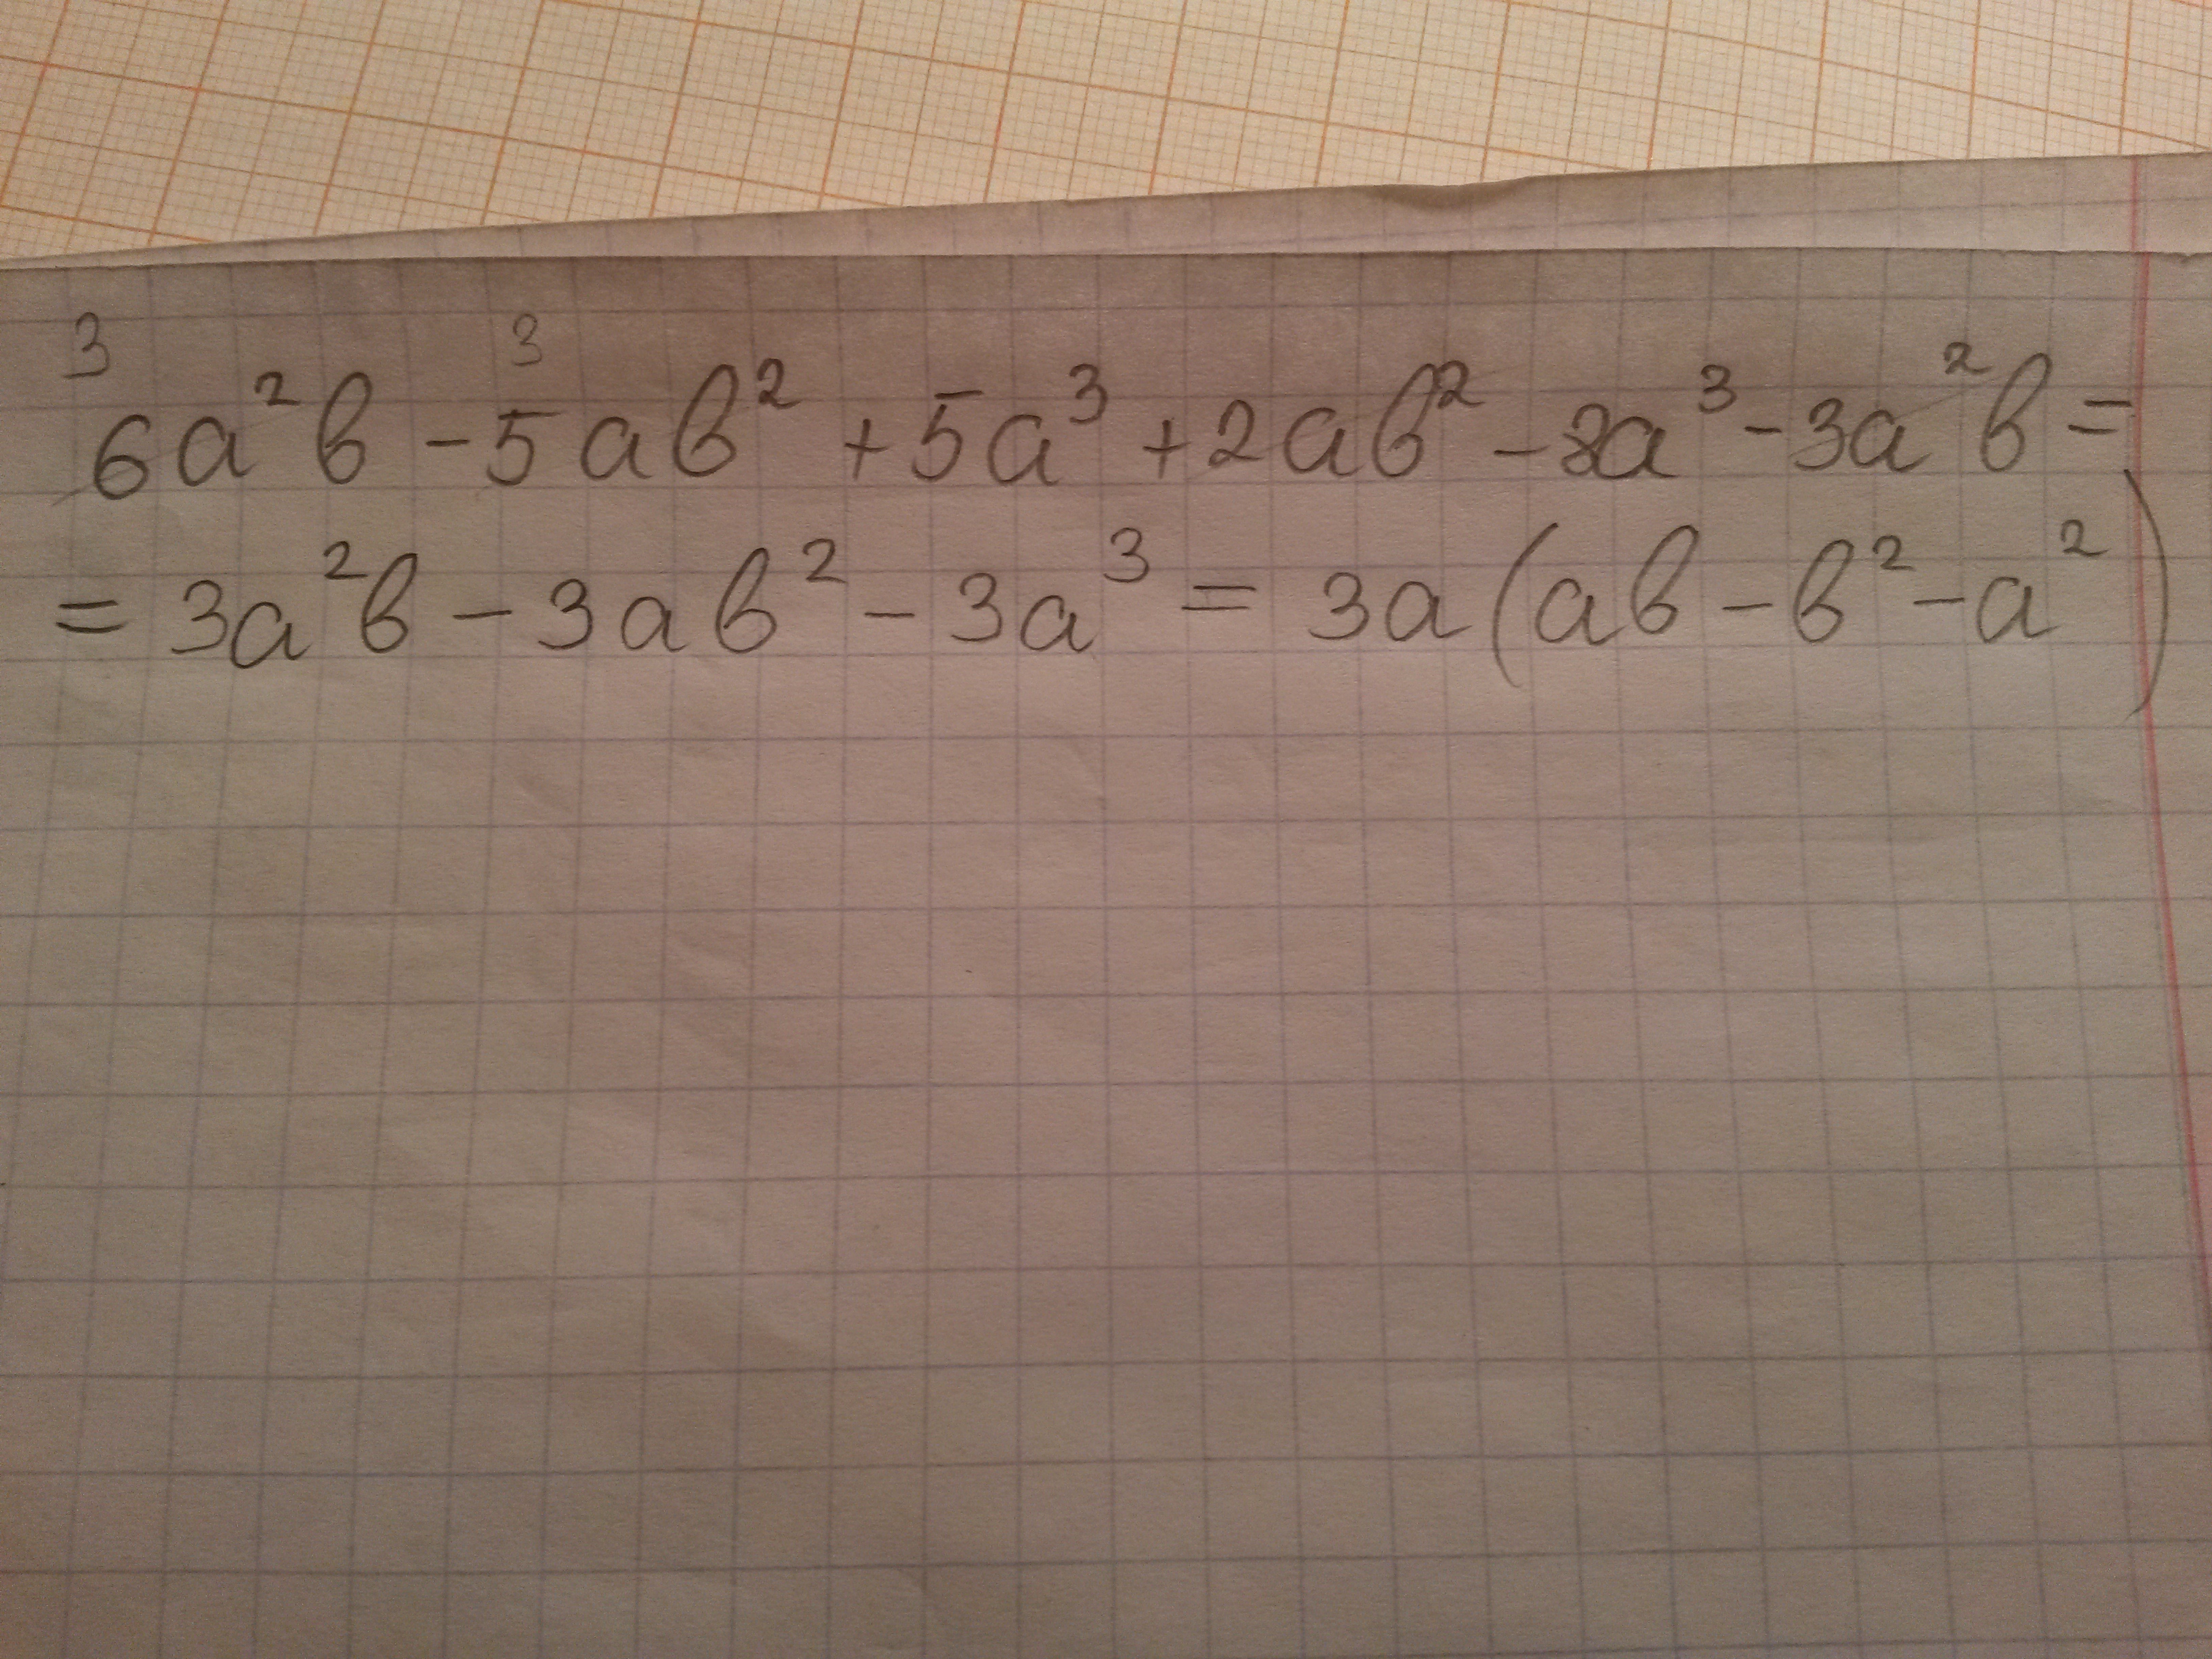 3 3
6a²b - 5ab² + 5a³ + 2ab² - 8a³ - 3a²b =
= 3a²b - 3ab² - 3a³ = 3a(ab - b² - a²)